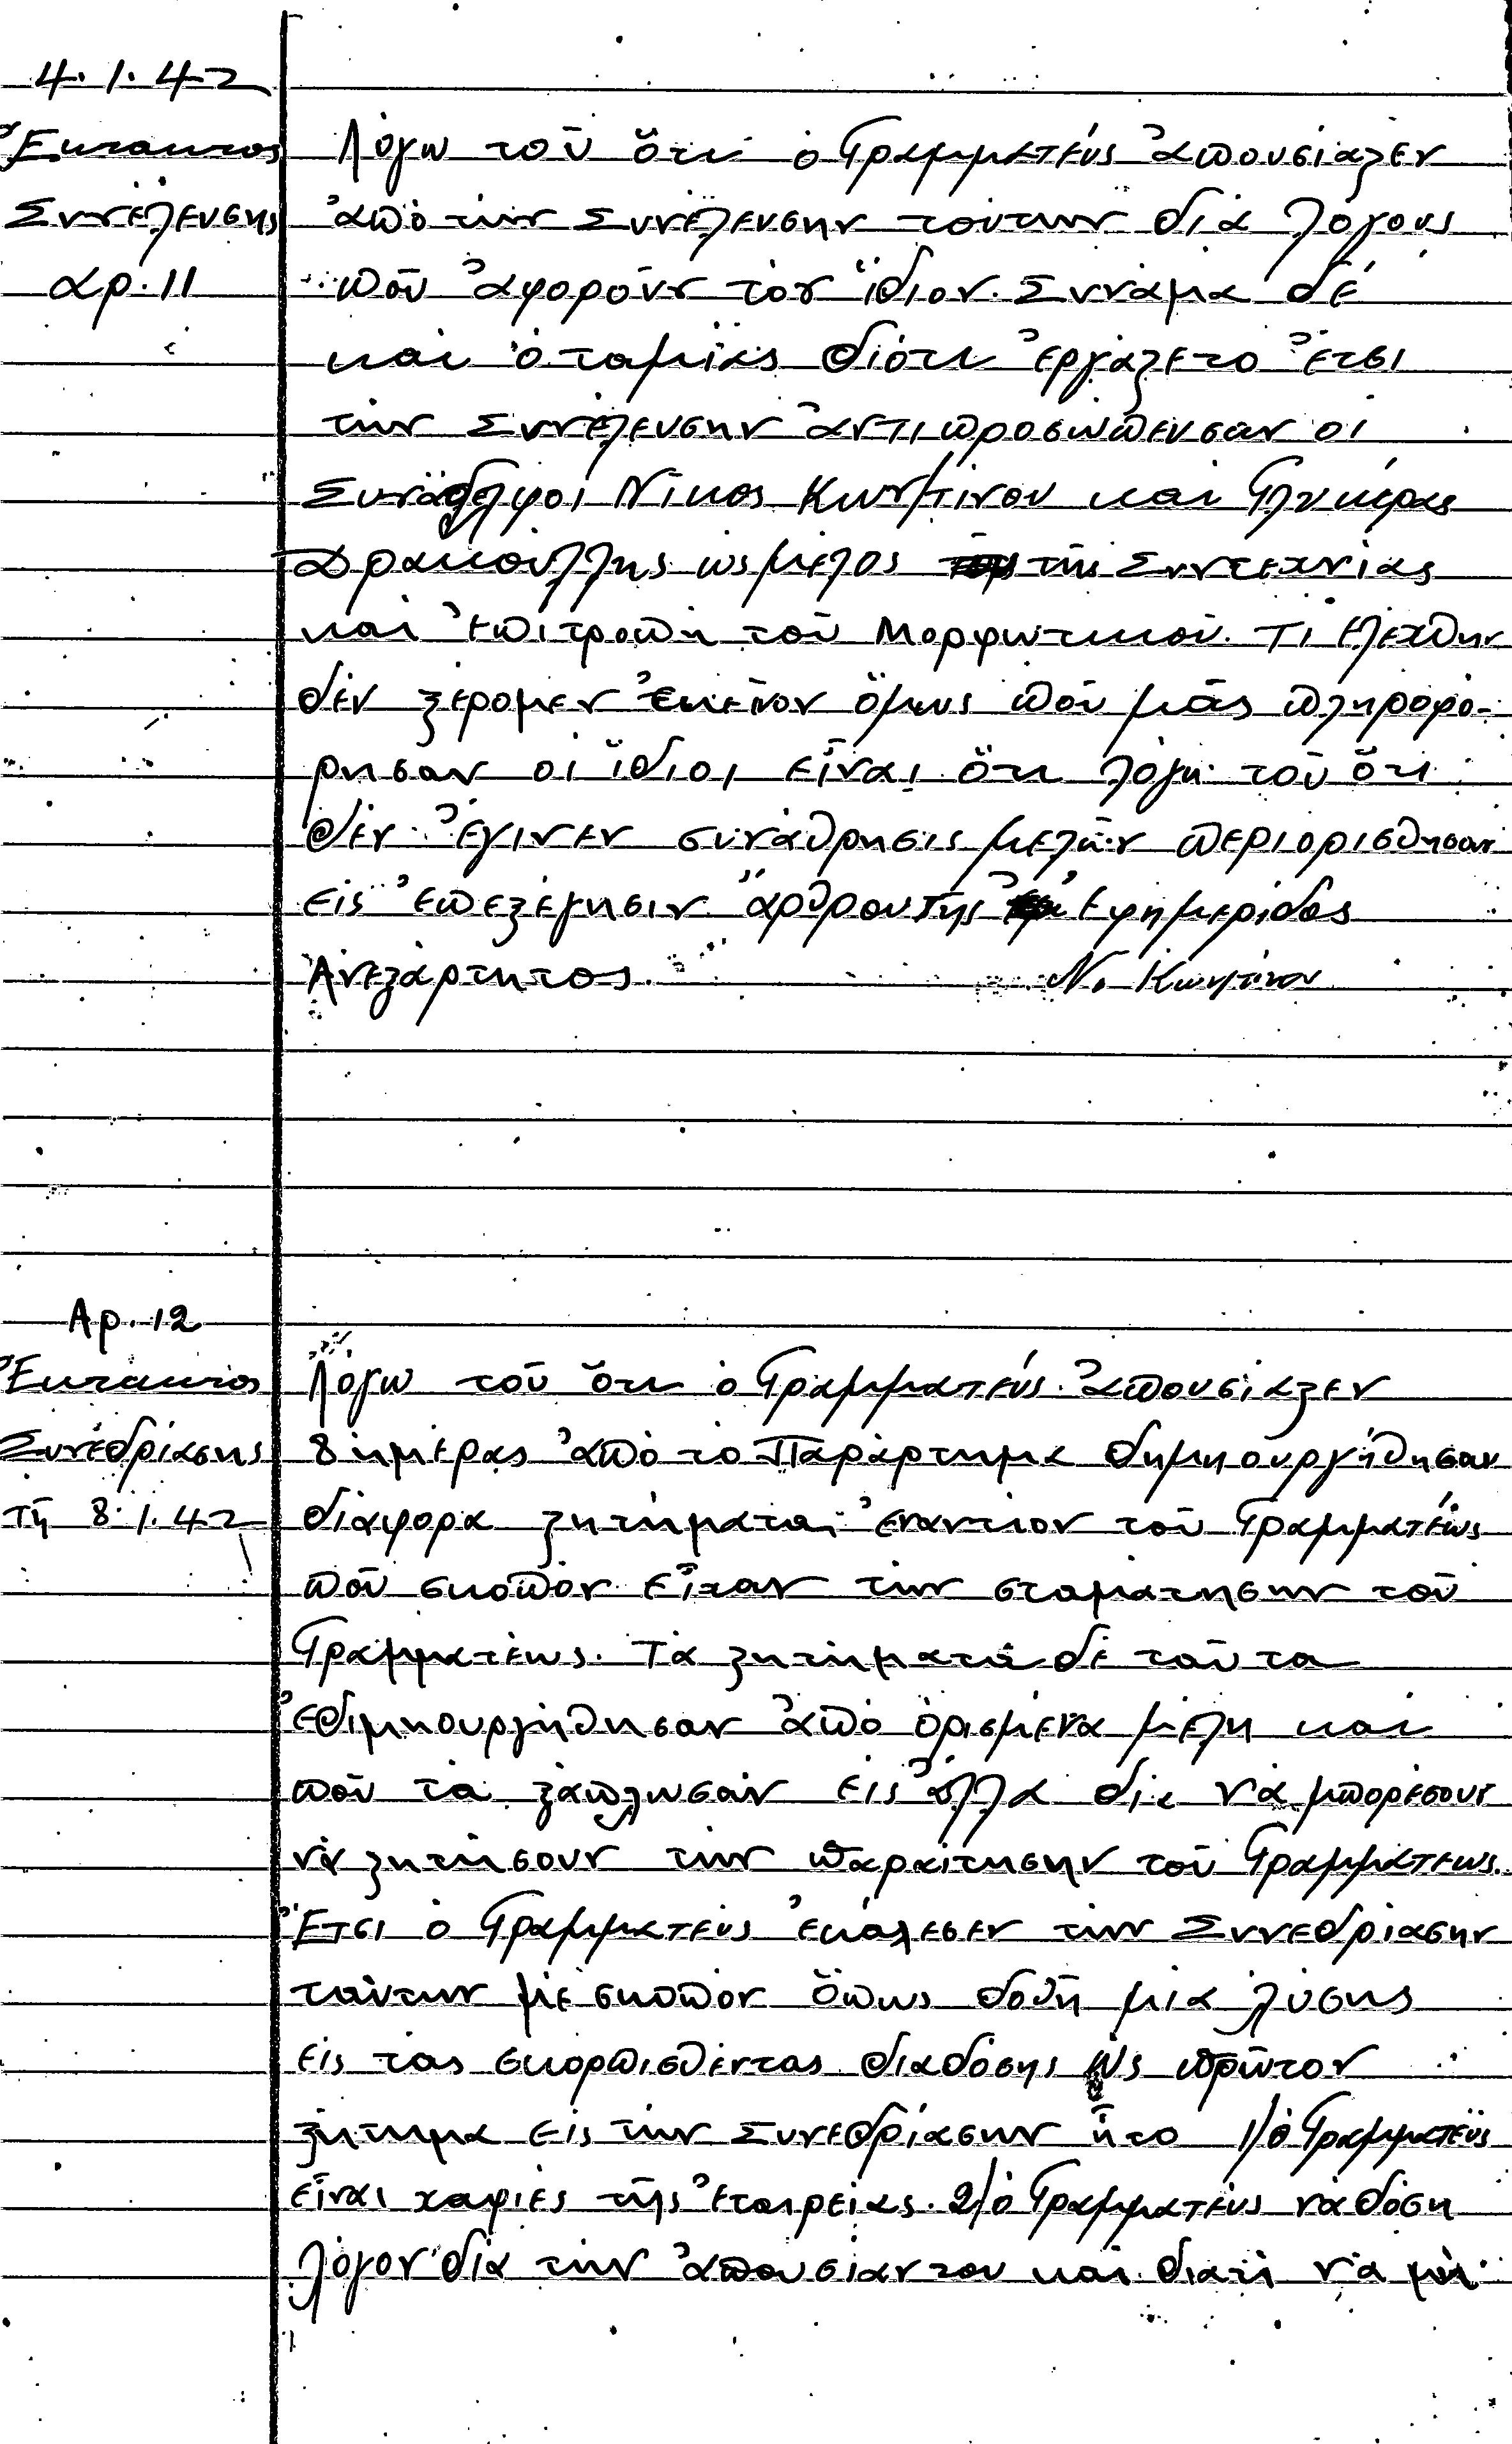 4.1.42
Ἔκτακτος
Συνέλευσης
αρ. 11
Λόγω τοῦ ὅτι ὁ Γραμματέύς ἀπουσίαζεν
ἀπὸ τὴν Συνέλευσην τούτην διά λόγους
ποῦ ἀφοροῦν τὸν ἴδιον. Συνάμα δέ
καὶ ὁ ταμίας διότι ἐργάζετο ἔτσι
τὴν Συνέλευσην ἀντιπροσώπευσαν οἱ
Συνάδελφοι Νίκος Κων/τίνου καὶ Γλυκέρας
Δρακούλλης ὡς μέλος τῆς Συντεχνίας
καὶ ἐπιτροπὴ τοῦ Μορφωτικοῦ. Τι ἐλέχθην
δέν ξέρομεν ἐκεῖνον ὅμως ποῦ μᾶς πληροφό-
ρησαν οἱ ἴδιοι εἶναι ὅτι λόγω τοῦ ὅτι
δὲν ἔγινεν συνάθρησις μελῶν περιορίσθησαν
εἰς ἐπεξέγησιν ἄρθρου τῆς Ἐφημερίδος
Ἀνεξάρτητος. Ν. Κων/τίνου
Αρ. 12
Ἔκτακτος
Συνέδρίασης
τῇ 8.1.42
Λόγω τοῦ ὅτι ὁ Γραμματέύς ἀπουσίαζεν
8 ἡμέρας ἀπὸ τὸ Παράρτημα δημηουργήθησαν
διάφορα ζητήματα ἐναντίον τοῦ Γραμματέως
ποῦ σκοπὸν εἶχαν τὴν σταμάτησην τοῦ
Γραμματέως. Τὰ ζητήματα δὲ ταῦτα
ἐδιμηουργήθησαν ἀπὸ ὁρισμένα μέλη καὶ
ποῦ τὰ ξάπλωσαν εἰς ἄλλα διὰ νὰ μπορέσουν
νὰ ζητήσουν τὴν παραίτησην τοῦ Γραμματέως.
Ἔτσι ὁ Γραμματεύς ἐκάλεσεν τὴν Συνεδρίασην
ταύτην μὲ σκοπὸν ὅπως δοθῆ μιὰ λύσης
εἰς τὰς σκορπισθέντας διαδόσης ὡς πρῶτον
ζήτημα εἰς τὴν Συνεδρίασην ἦτο 1/ὁ Γραμματεύς
εἶναι χαφιές τῆς ἐταιρείας. 2/ὁ Γραμματεύς νὰ δόση
λόγον διὰ τὴν ἀπουσίαν του καὶ διατὶ νὰ μὴ